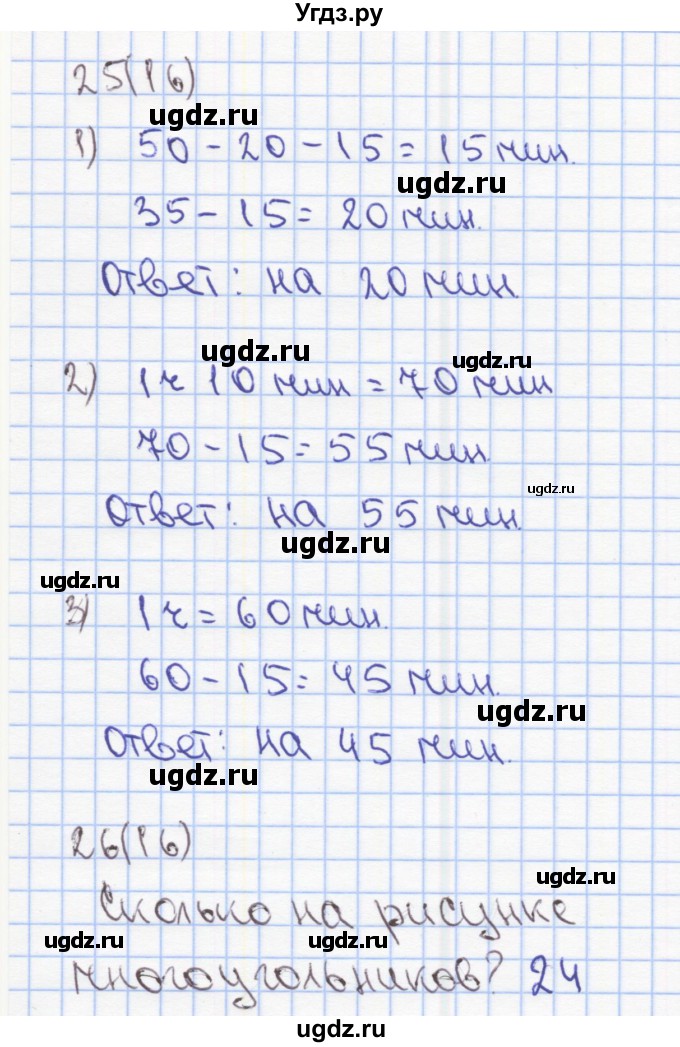 Угдз.ру
25(16)
ugdz.ru
1) 50 - 20 - 15 = 15 мин.
ugdz.ru
35 - 15 = 20 мин.
Ответ: на 20 мин.
ugdz.ru ugdz.ru
2) 1 ч 10 мин = 70 мин
70 - 15 = 55 мин.
ugdz.ru
Ответ: на 55 мин.
ugdz.ru
ugdz.ru
3) 1 ч = 60 мин.
60 - 15 = 45 мин.
ugdz.ru
Ответ: на 45 мин.
ugdz.ru
26(16)
ugdz.ru
Сколько на рисунке
ugdz.ru ugdz.ru
многоугольников? 24
ugdz.ru